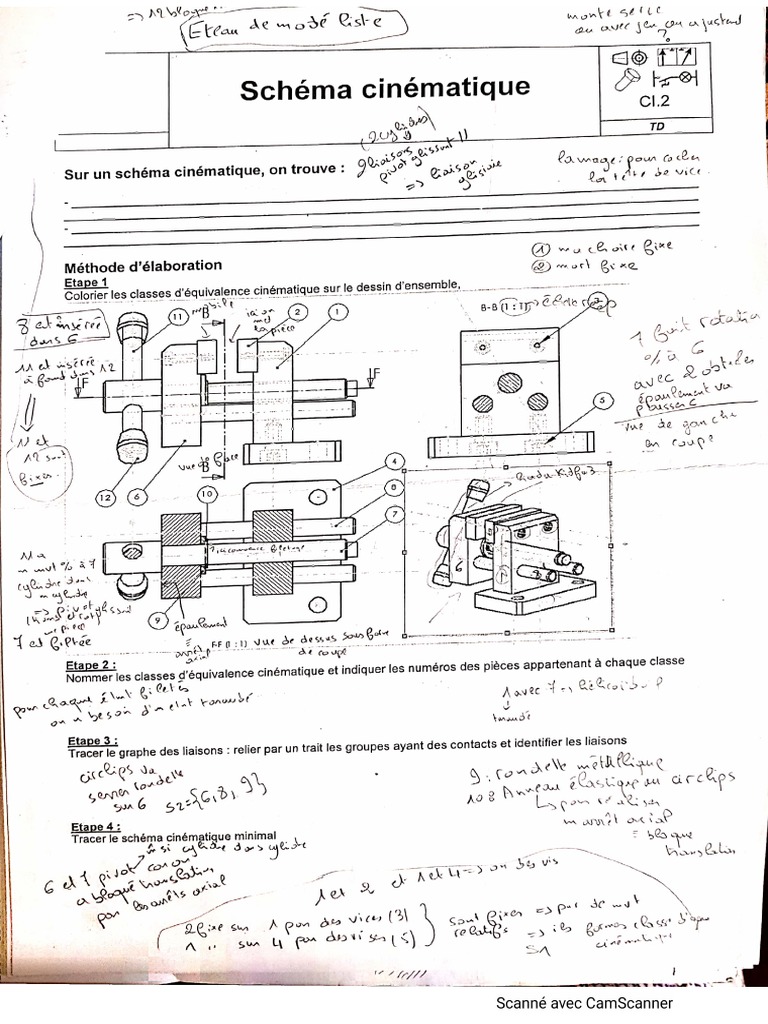 => 12 bloque..
Etau de modéliste
monte serré
ou avec jeu ou ajusteur
?
Schéma cinématique
CI.2
TD
(2 cylindres)
Sur un schéma cinématique, on trouve :
2 liaisons
pivot glissant //
=> liaison
glissière
lamage : pour cacher
la tête de vice.
-
-
Méthode d'élaboration
① machoire fixe
② mort fixe
Etape 1
Colorier les classes d'équivalence cinématique sur le dessin d'ensemble,
8 est insérée
dans 6
11 est insérée
à fond dans 12
11 et
12 sont
fixes
mobile
B
ici on
met
la pièce
11
2
1
B-B (1 : 1)
3
F
F
5
vue de face
B
12
6
10
4
8
7
9
1 fait rotation
% à 6
avec 2 obstacles
épaulement va
pousser 6
vue de gauche
en coupe
6
1
mvt % à 7
cylindre dans
cylindre
=> pivot glissant
7 est filetée
épaulement
= arrêt
axial
FF (1 : 1) vue de dessus sous forme
de coupe
Etape 2 :
Nommer les classes d'équivalence cinématique et indiquer les numéros des pièces appartenant à chaque classe
pour chaque élmt filetés
on a besoin d'un elmt taraudé
1 avec 7 => hélicoïdal
taraudé
Etape 3 :
Tracer le graphe des liaisons : relier par un trait les groupes ayant des contacts et identifier les liaisons
circlips va
serrer rondelle
sur 6
S2={6,8,9}
9 : rondelle métallique
10 : Anneau élastique ou circlips
↳ pour réaliser
un arrêt axial
= bloque
translation
Etape 4 :
Tracer le schéma cinématique minimal
si cylindre dans cylindre
6 et 7 pivot car on
a bloqué translation
par les arrêts axial
1 et 2 et 1 et 4 => on a des vis
2 fixe sur 1 par des vices (3)
1 " sur 4 par des vises (5)
sont fixes => pas de mvt
relatifs
=> ils formes classe d'équi
cinématique
S1
1
Scanné avec CamScanner